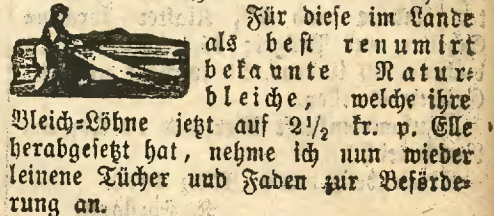 Für diese im Lande
als best renumirt
bekannte Natur-
bleiche, welche ihre
Bleich-Löhne jetzt auf 2 1/2 kr. p. Elle
herabgesetzt hat, nehme ich nun wieder
leinene Tücher und Faden zur Beförde-
rung an.